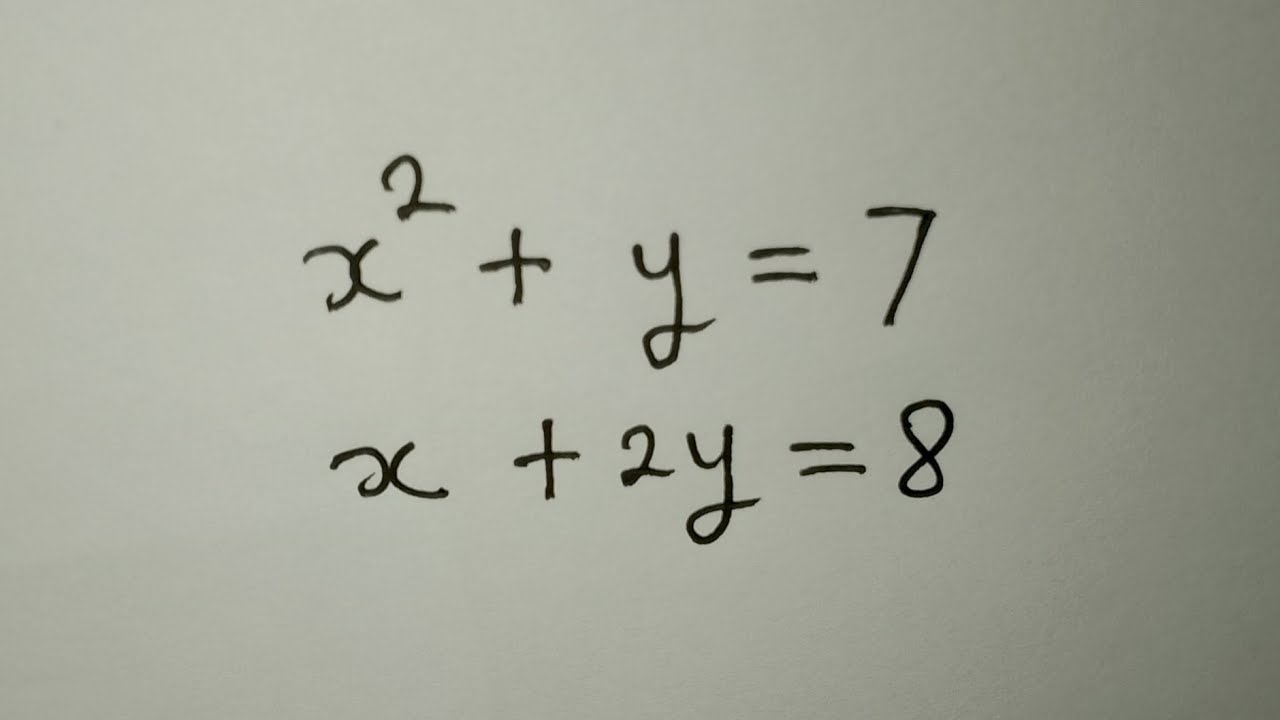 x² + y = 7
x + 2y = 8